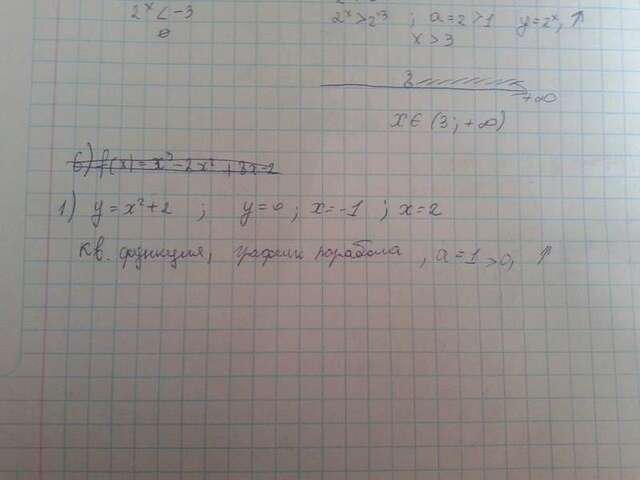 2ˣ < -3
∅
2ˣ > 2³ ; a = 2 > 1 y = 2ˣ, ↑
x > 3
3
+∞
x ∈ (3; +∞)
6) f(x) = x³ - 2x² + 3x - 2
1) y = x² + 2 ; y = 0 ; x = -1 ; x = 2
Кв. функция, график порабола, a = 1 > 0, ↑